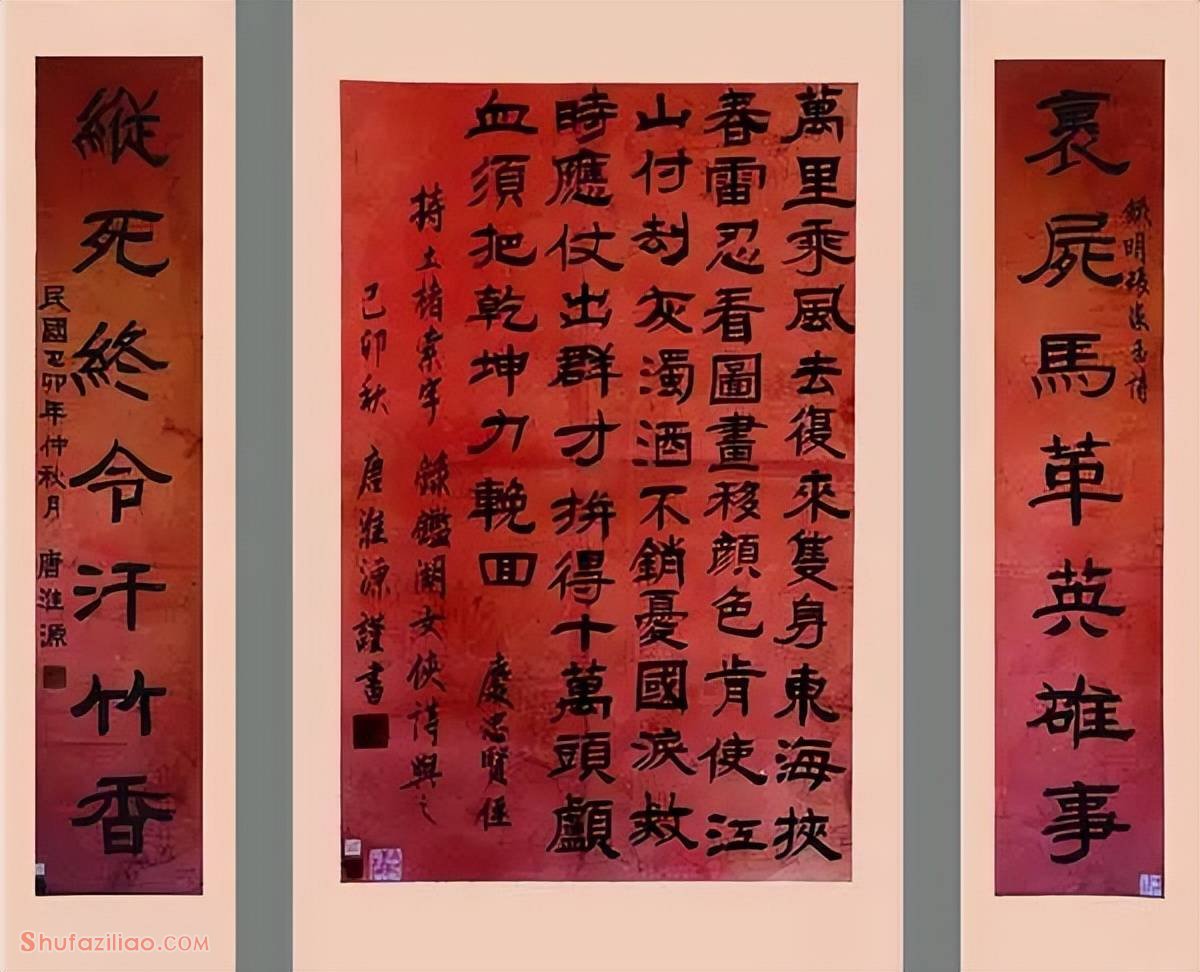 裹屍馬革英雄事
錄明張家玉詩
萬里乘風去復來隻身東海挾
春雷忍看圖畫移顏色肯使江
山付刧灰濁酒不銷憂國淚救
時應仗出群才拚得十萬頭顱
血須把乾坤力輓回 慶忠賢侄
持土楮索字 錄鑑湖女俠詩與之
己卯秋 唐淮源謹書
縱死終令汗竹香
民國己卯年仲秋月 唐淮源
Shufaziliao.COM